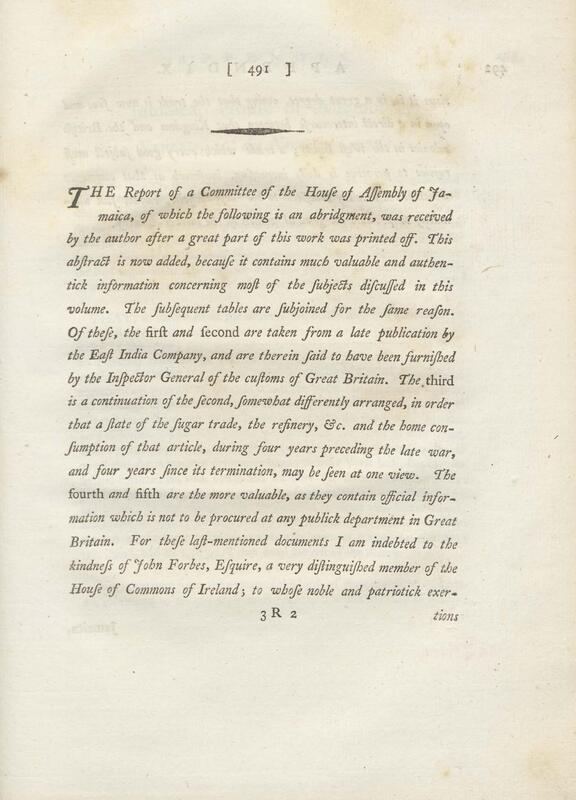 [ 491 ]
THE Report of a Committee of the House of Assembly of Ja-
maica, of which the following is an abridgment, was received
by the author after a great part of this work was printed off. This
abstract is now added, because it contains much valuable and authen-
tick information concerning most of the subjects discussed in this
volume. The subsequent tables are subjoined for the same reason.
Of these, the first and second are taken from a late publication by
the East India Company, and are therein said to have been furnished
by the Inspector General of the customs of Great Britain. The third
is a continuation of the second, somewhat differently arranged, in order
that a state of the sugar trade, the refinery, &c. and the home con-
sumption of that article, during four years preceding the late war,
and four years since its termination, may be seen at one view. The
fourth and fifth are the more valuable, as they contain official infor-
mation which is not to be procured at any publick department in Great
Britain. For these last-mentioned documents I am indebted to the
kindness of John Forbes, Esquire, a very distinguished member of the
House of Commons of Ireland; to whose noble and patriotick exer-
3 R 2 tions